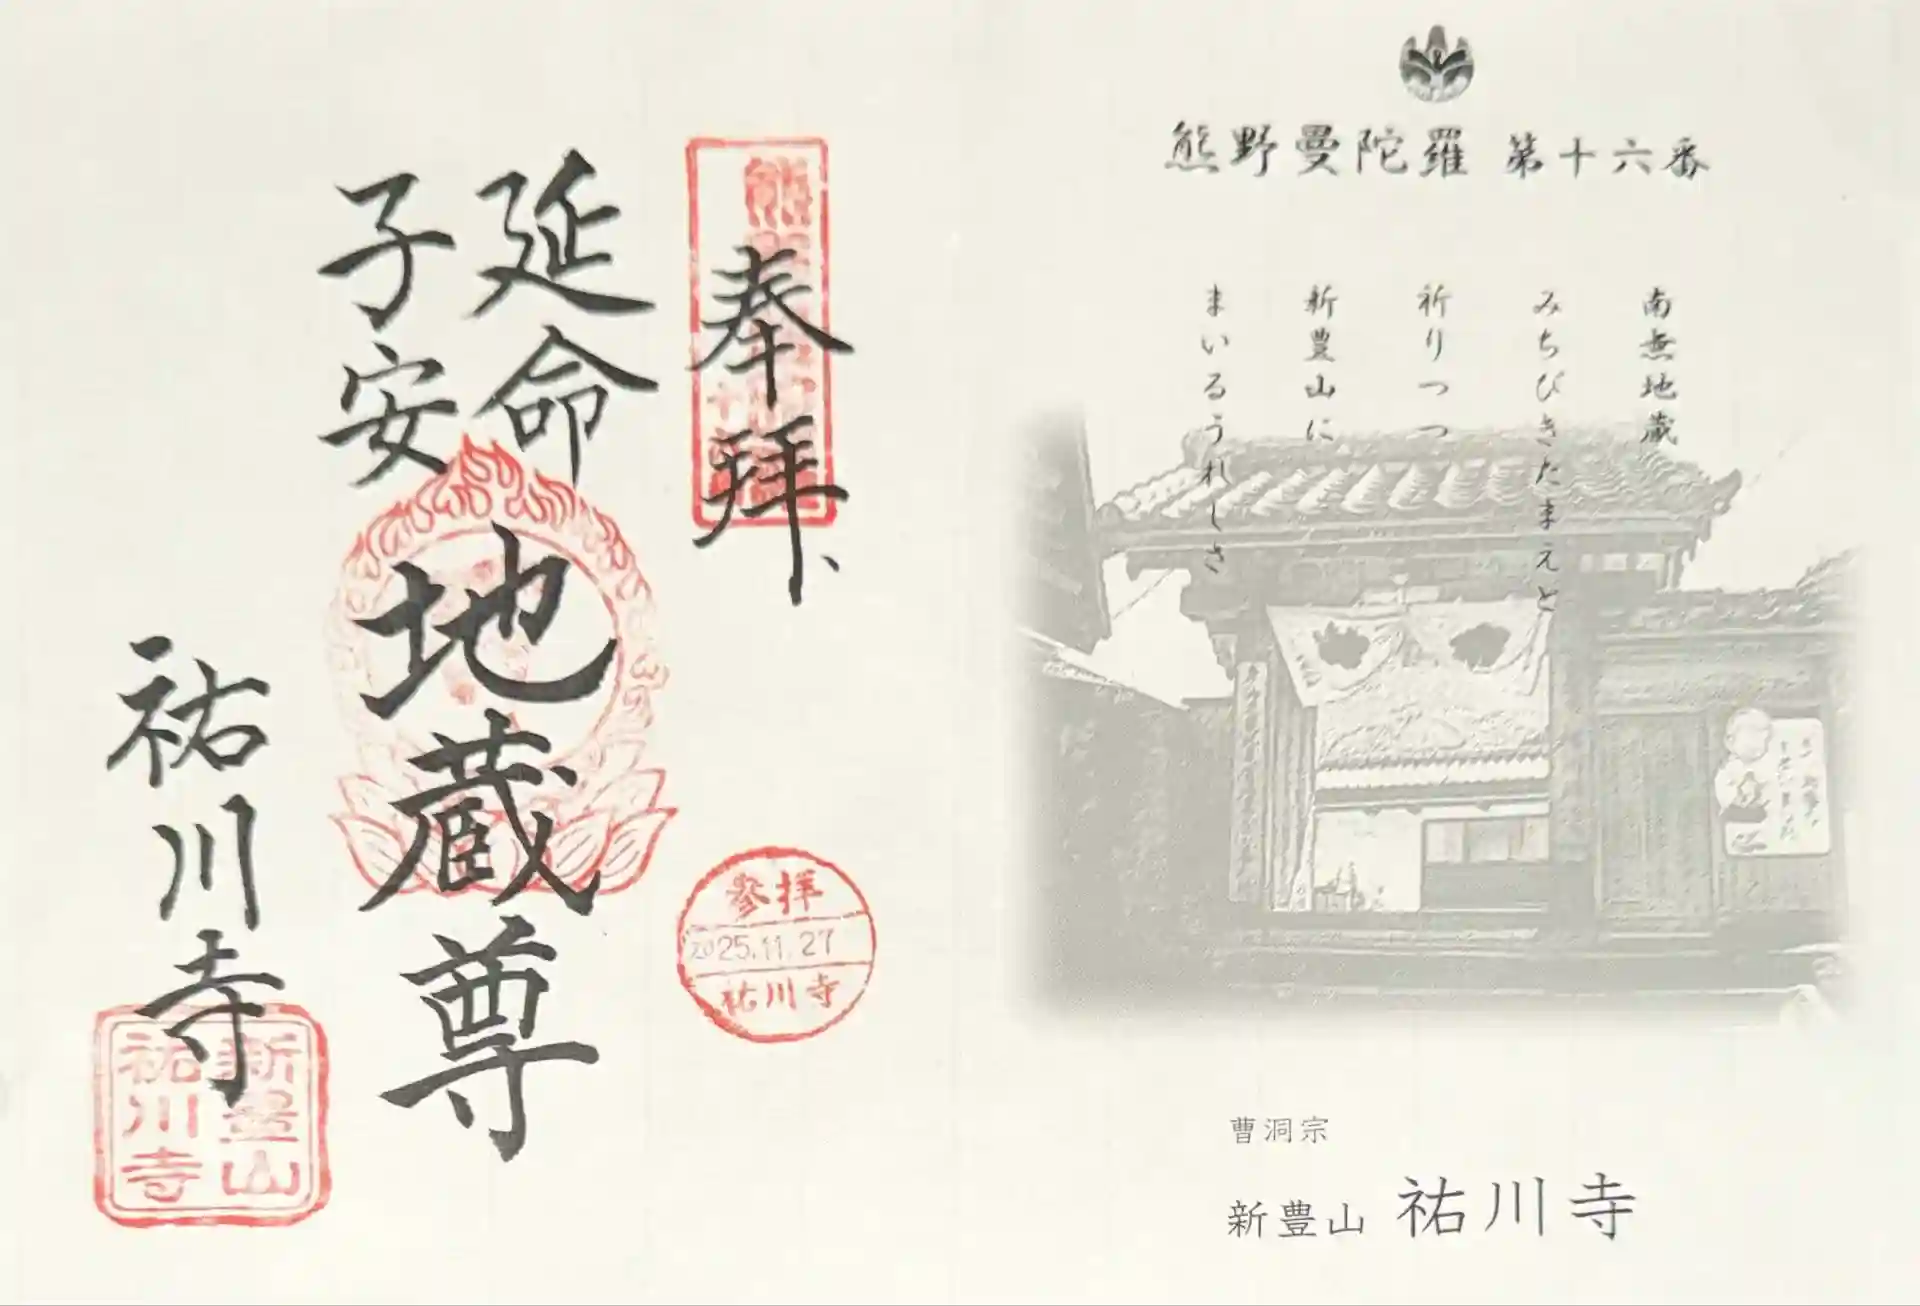 熊野曼陀羅 第十六番
南無地蔵
みちびきたまえと
祈りつつ
新豊山に
まいるうれしさ
曹洞宗
新豊山 祐川寺
奉拝
延命
子安
地蔵尊
祐川寺
参拝
2025.11.27
祐川寺
新豊山
祐川寺